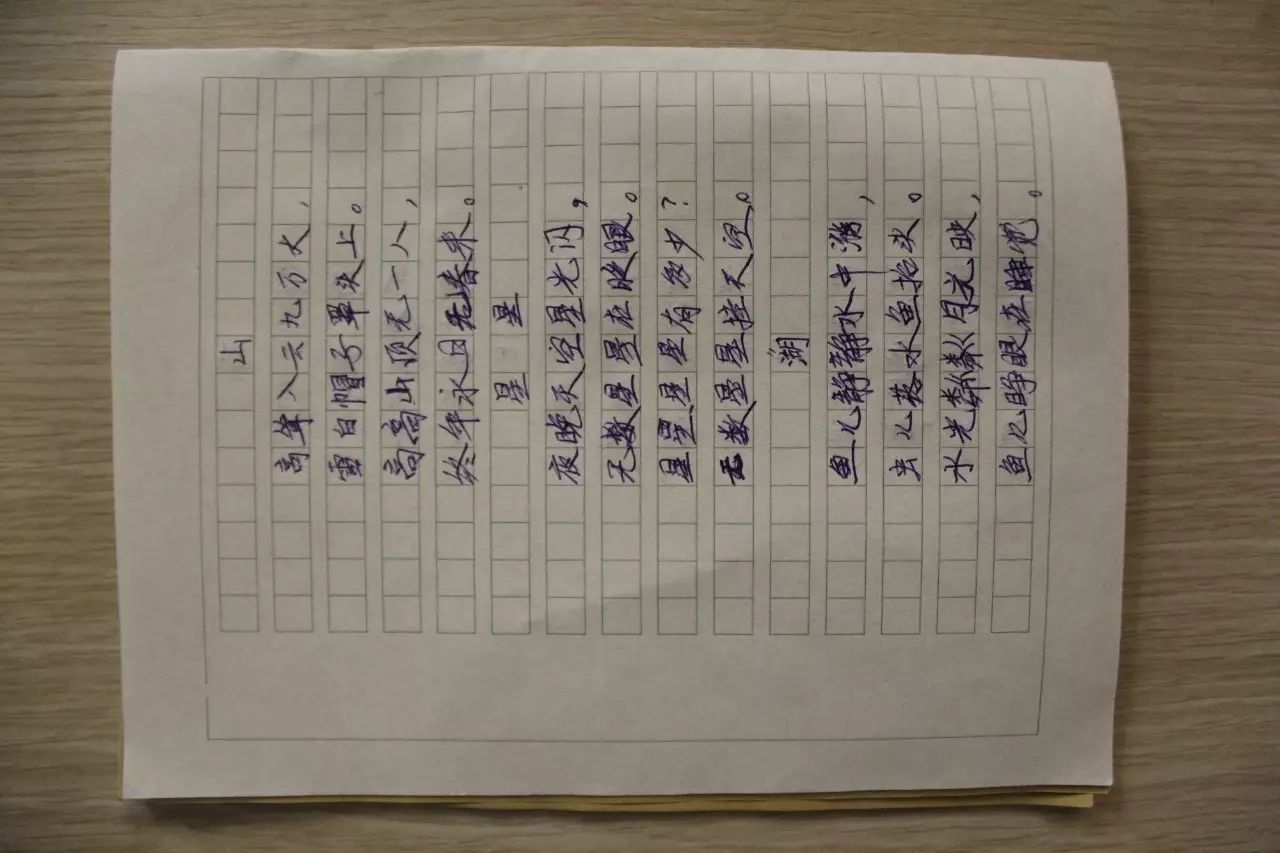 山
高耸入云九万丈，
雪白帽子罩头上。
高高山顶无一人，
终年永日无春来。
星 星
夜晚天空星光闪，
无数星星在眨眼。
星星星星有多少？
无数星星挂天空。
湖
鱼儿静静水中游，
虫儿落水鱼抬头。
水光粼粼月光映，
鱼儿睁眼在睡觉。